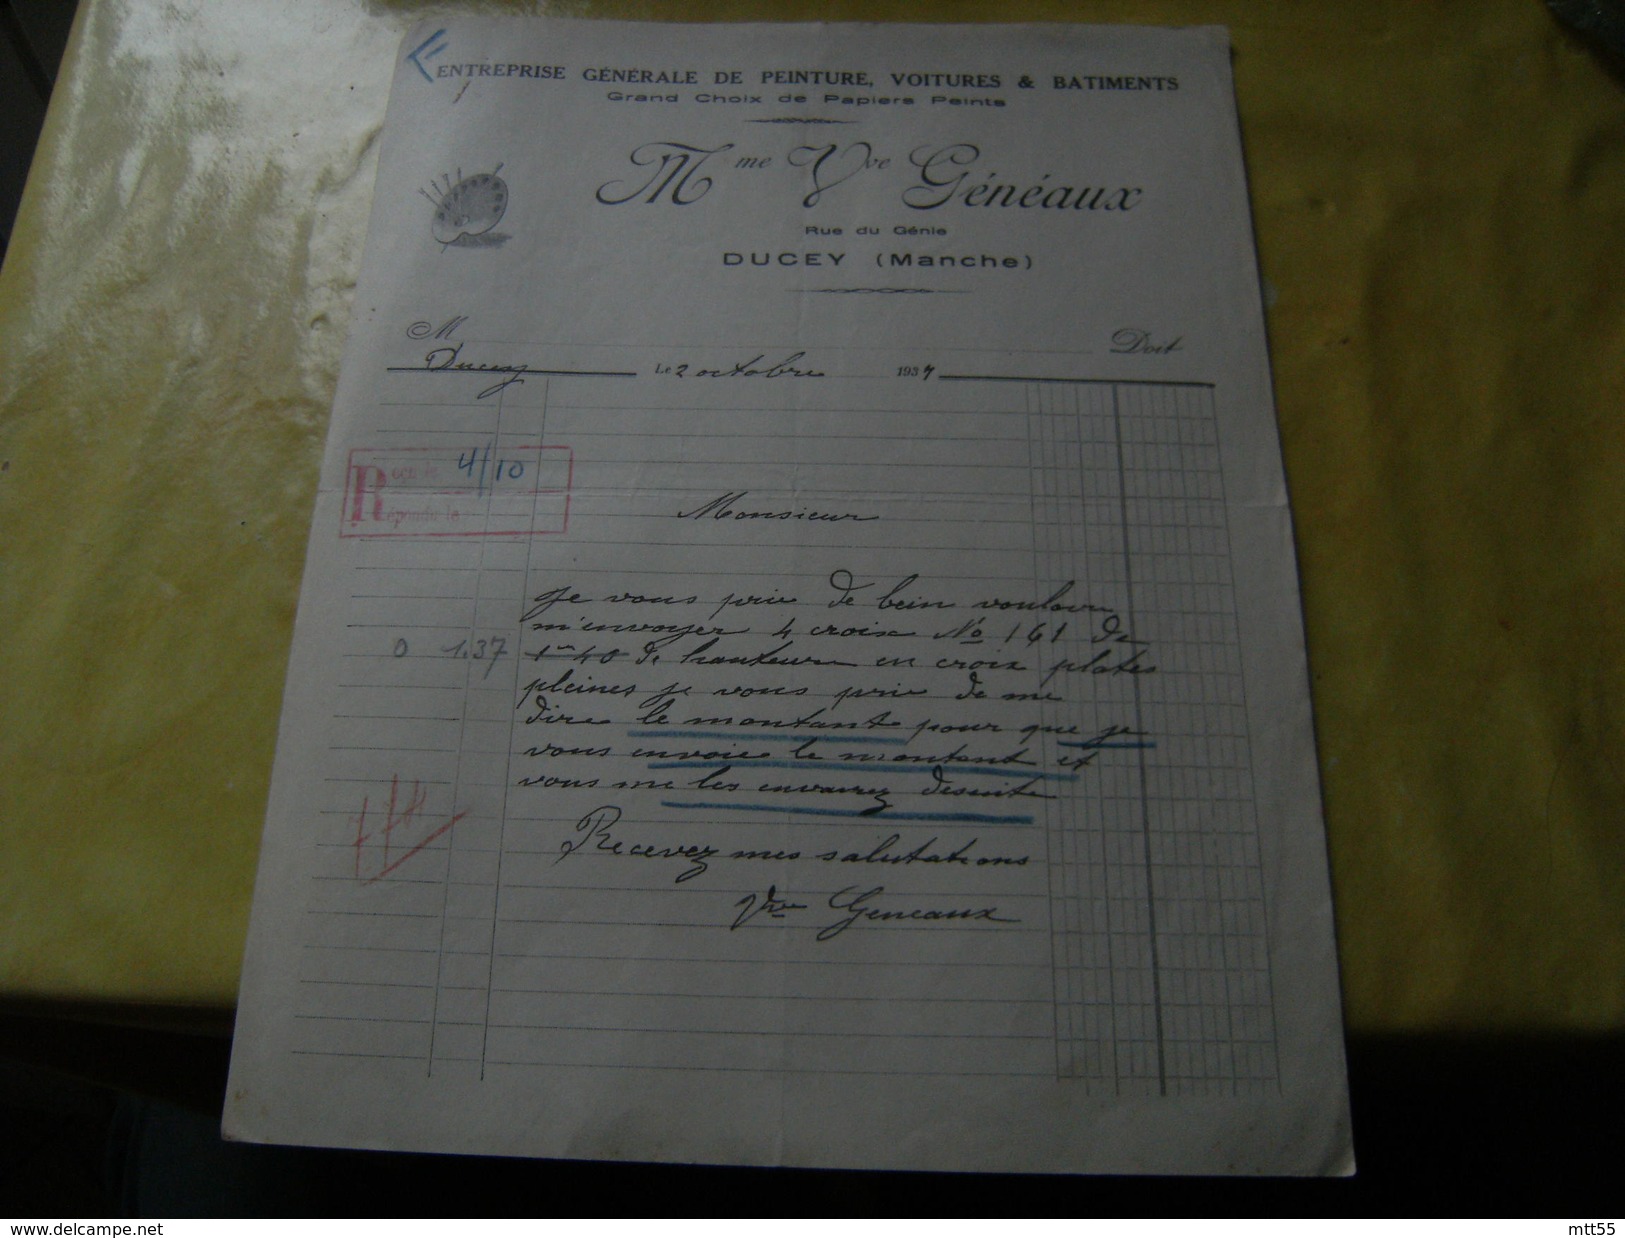 ENTREPRISE GÉNÉRALE DE PEINTURE, VOITURES & BATIMENTS
Grand Choix de Papiers Peints
Mme Vve Généaux
Rue du Génie
DUCEY (Manche)
M
Doit
Ducey Le 2 octobre 1937
Reçu le 4/10
Répondu le
Monsieur
Je vous prie de bein vouloir
m'envoyer 4 croix No 161 de
0 1.37 1m 40 de hauteur en croix plates
pleines je vous prie de me
dire le montant pour que je
vous envoie le montant et
vous me les enverrez desuite
Recevez mes salutations
Vve Geneaux
delcampe.net
mtt55